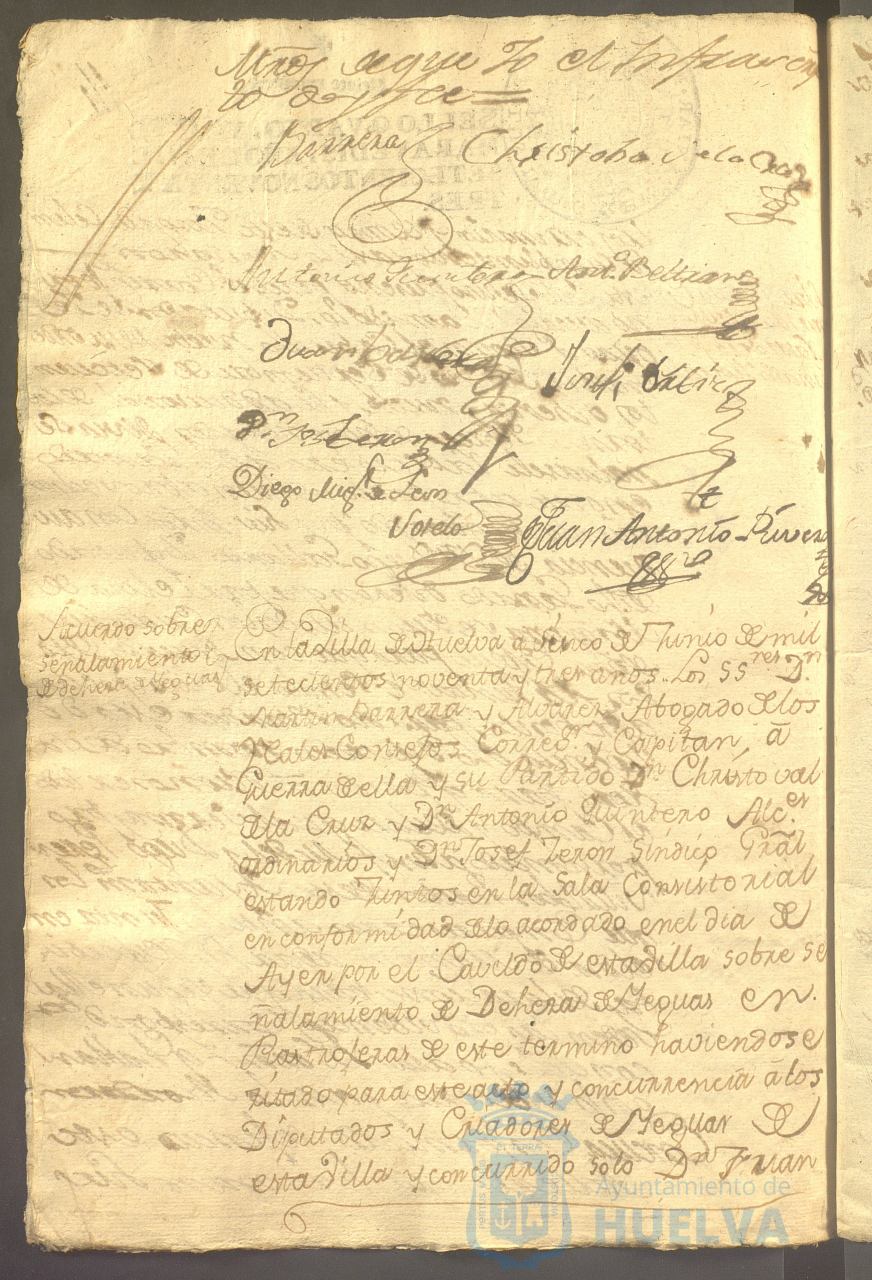 Mrñs de que Yo el Infraescrip
to doy fee =
Barrera
Christobal de la Cruz
Antonio Quintero
Antº. Beltran
Juan
Josef
Dn Jph Zeron
Diego Migl. de Leon
Sotelo
Juan Antonio Rivera
Acuerdo sobre
señalamiento
de dehesa de Yeguas
En la Villa de Huelva a sinco de Junio de mil
setecientos noventa y tres años. Los SSres Dn
Martin Barrera y Alvarez Abogado de los
Reales Consejos Corregr. y Capitan á
Guerra de ella y su Partido Dn Christoval
de la Cruz y Dn Antonio Quintero Alces.
ordinarios y Dn Josef Zeron Sindico Gral
estando Juntos en la Sala Consistorial
en conformidad de lo acordado en el dia de
Ayer por el Cavildo de esta Villa sobre se
ñalamiento de Dehesa de Yeguas en
Rastrojeras de este termino haviendose
sitado para este acto y concurrencia á los
Diputados y Criadores de Yeguas de
esta Villa y concurrido solo Dn Juan
Ayuntamiento de
HUELVA